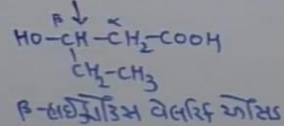 β α
HO-CH-CH₂-COOH
CH₂-CH₃
β-હાઈડ્રોક્સિ વેલરિક ઍસિડ